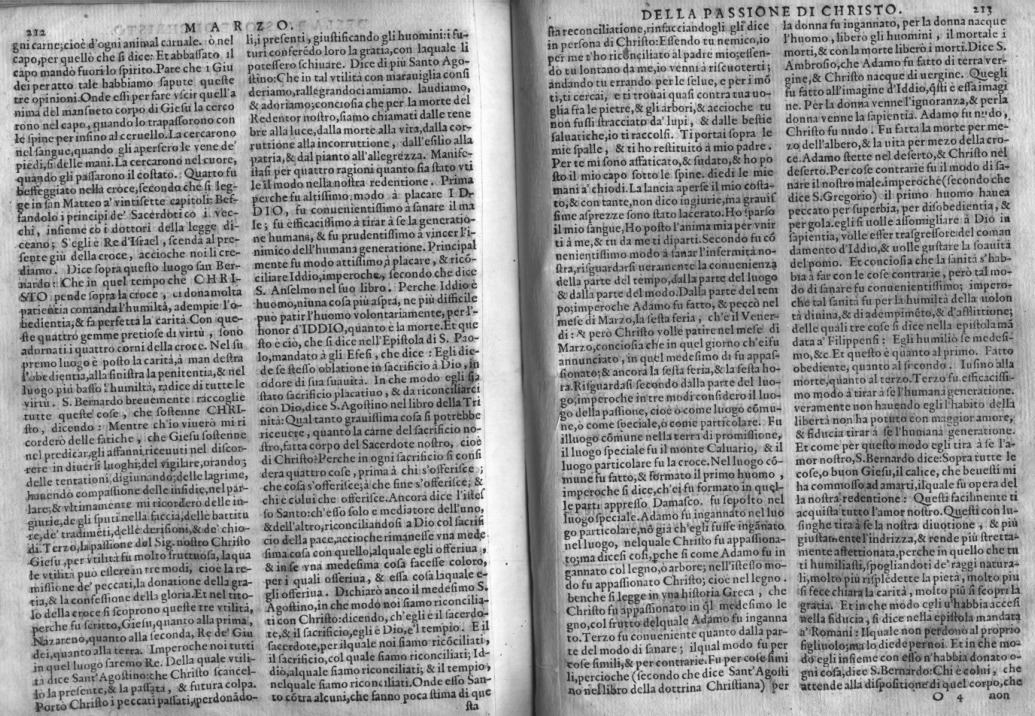 212 MARZO.
gni carne; cioè d'ogni animal carnale. ò nel
capo, per quello che si dice: Et abbassato il
capo mandò fuori lo spirito. Pare che i Giu
dei per atto tale habbiamo sapute queste
tre opinioni. Onde essi per fare vscir quell'a
nima del mansueto corpo di Giesu la cerco
rono nel capo, quando lo trapassorono con
le spine per infino al ceruello. La cercarono
nel sangue, quando gli apersero le vene de'
piedi, & delle mani. La cercarono nel cuore,
quando gli passarono il costato. Quarto fu
beffeggiato nella croce, secondo che si leg-
ge in san Matteo a' vintisette capitoli: Bef-
fandolo i principi de' Sacerdoti co i vec-
chi, insieme cò i dottori della legge di-
ceano; S'egli è Re d'Israel, scenda al pre-
sente giù della croce, accioche noi li cre-
diamo. Dice sopra questo luogo san Ber-
nardo: Che in quel tempo che CHRI-
STO pende sopra la croce, ci dona molta
patientia comanda l'humiltà, adempie l'o-
bedientia, & fa perfetta la carità. Con que-
ste quattro gemme pretiose di virtù, sono
adornati i quattro corni della croce. Nel su
premo luogo è posto la carità, à man destra
l'obedientia, alla sinistra la penitentia, & nel
luogo più basso l'humiltà, radice di tutte le
virtù. S. Bernardo breuemente raccoglie
tutte queste cose, che sostenne CHRI-
sto, dicendo: Mentre ch'io viuerò mi ri
corderò delle fatiche, che Giesu sostenne
nel predicar, egli affanni, riceuuti nel discor-
rere in diuersi luoghi, del vigilare, orando;
delle tentationi, digiunando; delle lagrime,
hauendo compassione delle insidie, nel par-
lare; & vltimamente mi ricorderò delle in-
giurie, de gli sputi nella faccia, delle battitu
re, de' tradimẽti, delle derisioni, & de' chio-
di. Terzo, la passione del Sig. nostro Christo
Giesu, per vtilità fu molto fruttuosa, la qua
le vtilità può essere in tre modi, cioè la re-
missione de' peccati, la donatione della gra-
tia, & la confessione della gloria. Et nel tito-
lo della croce si scoprono queste tre vtilità,
perche fu scritto, Giesu, quanto alla prima,
Nazareno, quanto alla seconda, Re de' Giu
dei, quanto alla terza. Imperoche noi tutti
in quel luogo saremo Re. Della quale vtili-
tà dice Sant'Agostino: che Christo scancel-
lò la presente, & la passata, & futura colpa.
Portò Christo i peccati passati, perdonãdo-
li, i presenti, giustificando gli huomini: i fu-
turi conferẽdo loro la gratia, con laquale li
potessero schiuare. Dice di più Santo Ago-
stino: Che in tal vtilità con marauiglia consi
deriamo, rallegrandoci amiamo. laudiamo,
& adoriamo; conciosia che per la morte del
Redentor nostro, siamo chiamati dalle tene
bre alla luce, dalla morte alla vita, dalla cor-
ruttione alla incorruttione, dall'esilio alla
patria, & dal pianto all'allegrezza. Manife-
stasi per quattro ragioni quanto sia stato vti
le il modo nella nostra redentione. Prima
perche fu altissimo modo à placare I D-
DIO, fu conuenientissimo à sanare il ma
le; fu efficacissimo à tirar à se la generatio-
ne humana, & fu prudentissimo à vincer l'i-
nimico dell'humana generatione. Principal
mente fu modo attissimo, à placare, & ricõ-
ciliare Iddio, imperoche, secondo che dice
S. Anselmo nel suo libro. Perche Iddio è
huomo, niuna cosa più aspra, ne più difficile
può patir l'huomo volontariamente, per l'-
honor d'IDDIO, quanto è la morte. Et que
sto è ciò, che si dice nell'Epistola di S. Pao-
lo, mandato à gli Efesi, che dice: Egli die-
de se stesso oblatione in sacrificio à Dio, in
odore di sua suauità. In che modo egli sia
stato sacrificio placatiuo, & da riconciliarci
con Dio, dice S. Agostino nel libro della Tri
nità: Qual tanto grauissima cosa si potrebbe
riceuere, quanto la carne del sacrificio no-
stro, fatta corpo del Sacerdote nostro, cioè
di Christo? Perche in ogni sacrificio si consi
dera quattro cose, prima à chi s'offerisce;
che cosa s'offerisce; à che fine s'offerisce; &
chi è colui che offerisce. Ancora dice l'istes
so Santo: ch'esso solo e mediatore dell'uno,
& dell'altro, riconciliandosi a Dio col sacrifi
cio della pace, accioche rimanesse vna mede
sima cosa con quello, alquale egli offeriua,
& in se vna medesima cosa facesse coloro,
per i quali offeriua, & essa cosa laquale e-
gli offeriua. Dichiarò anco il medesimo S.
Agostino, in che modo noi siamo riconcilia-
ti con Christo: dicendo, ch'egli è il sacerdo-
te, & il sacrificio, egli è Dio, e'l tempio. E il
sacerdote, per ilquale noi siamo ricõciliati,
il sacrificio, col quale siamo riconciliati; Id-
dio, alquale siamo riconciliati; & il tempio,
nelquale siamo riconciliati. Onde esso San-
to cõtra alcuni, che fanno poca stima di que
sta
DELLA PASSIONE DI CHRISTO. 213
sta reconciliatione, rinfacciandogli gli dice
in persona di Christo: Essendo tu nemico, io
per me t'ho ricõciliato al padre mio; essen-
do tu lontano da me, io venni à riscuoterti;
andando tu errando per le selue, e per i mõ
ti, ti cercai, e ti trouai quasi contra tua uo-
glia fra le pietre, & gli arbori, & accioche tu
non fussi stracciato da' lupi, & dalle bestie
saluatiche, io ti raccolsi. Ti portai sopra le
mie spalle, & ti ho restituito à mio padre.
Per te mi sono affaticato, & sudato, & ho po
sto il mio capo sotto le spine. diedi le mie
mani a' chiodi. La lancia aperse il mio costa-
to, & con tante, non dico ingiurie, ma grauis
sime asprezze sono stato lacerato. Ho sparso
il mio sangue, Ho posto l'anima mia per vnir
ti à me, & tu da me ti diparti. Secondo fu cõ
nenientissimo modo à sanar l'infermità no-
stra, risguardarsi ueramente la conuenienza
della parte del tempo, dalla parte del luogo
& dalla parte del modo. Dalla parte del tem
po, imperoche Adamo fu fatto, & peccò nel
mese di Marzo, la sesta feria, ch'è il Vener-
dì: & però Christo volle patire nel mese di
Marzo, conciosia che in quel giorno ch'ei fu
annunciato, in quel medesimo di fu appas-
sionato; & ancora la sesta feria, & la sesta ho-
ra. Risguardasi secondo dalla parte del luo-
go, imperoche in tre modi considero il luo-
go della passione, cioè ò come luogo cõmu-
ne, ò come speciale, ò come particolare. Fu
il luogo cõmune nella terra di promissione,
il luogo speciale fu il monte Caluario, & il
luogo particulare fu la croce. Nel luogo cõ-
mune fu fatto, & formato il primo huomo,
imperoche si dice, ch'ei fu formato in quel-
le parti appresso Damasco. fu sepolto nel
luogo speciale. Adamo fu ingannato nel luo
go particolare, nõ già ch'egli fusse ingãnato
nel luogo, nelquale Christo fu appassiona-
to; ma dicesi così, pche si come Adamo fu in
gannato col legno, ò arbore; nell'istesso mo-
do fu appassionato Christo; cioè nel legno.
benche si legge in vna historia Greca, che
Christo fu appassionato in ql medesimo le
gno, col frutto delquale Adamo fu inganna
to. Terzo fu conueniente quanto dalla par-
te del modo di sanare; ilqual modo fu per
cose simili, & per contrarie. Fu per cose simi
li, percioche (secondo che dice Sant'Agosti
no nel libro della dottrina Christiana) per
la donna fu ingannato, per la donna nacque
l'huomo, liberò gli huomini, il mortale i
morti, & con la morte liberò i morti. Dice S.
Ambrosio, che Adamo fu fatto di terra ver-
gine, & Christo nacque di uergine. Quegli
fu fatto all'imagine d'Iddio, q̃sti è essa imagi
ne. Per la donna venne l'ignoranza, & per la
donna venne la sapientia. Adamo fu nudo,
Christo fu nudo. Fu fatta la morte per me-
zo dell'albero, & la uita per mezo della cro-
ce. Adamo stette nel deserto, & Christo nel
deserto. Per cose contrarie fu il modo di sa-
nare il nostro male, imperoche (secondo che
dice S. Gregorio) il primo huomo hauea
peccato per superbia, per disobedientia, &
per gola. egli si uolle assomigliare à Dio in
sapientia, volle esser trasgressore del coman
damento d'Iddio, & uolle gustare la soauità
del pomo. Et conciosia che la sanità s'hab-
bia à far con le cose contrarie, però tal mo-
do di sanare fu conuenientissimo; impero-
che tal sanità fu per la humiltà della uolon
tà diuina, & di adempimẽto, & d'afflittione;
delle quali tre cose si dice nella epistola mã
data a' Filippensi: Egli humiliò se medesi-
mo, &c. Et questo è quanto al primo. Fatto
obediente, quanto al secondo. Insino alla
morte, quanto al terzo. Terzo fu efficacissi-
mo modo à tirar à se l'humana generatione.
veramente non hauendo egli l'habito della
libertà non ha potuto con maggior amore,
& fiducia tirar à se l'humana generatione.
Et come per questo modo egli tira à se l'a-
mor nostro, S. Bernardo dice: Sopra tutte le
cose, o buon Giesu, il calice, che beuesti mi
ha commosso ad amarti, ilquale fu opera del
la nostra redentione: Questi facilmente ti
acquista tutto l'amor nostro. Questi con lu-
singhe tira à se la nostra diuotione, & più
giustamente l'indrizza, & rende più stretta-
mente affettionata, perche in quello che tu
ti humiliasti, spogliandoti de' raggi natura-
li, molto più risplẽdette la pietà, molto più
si fece chiara la carità, molto più si scoprì la
gratia. Et in che modo egli u'habbia accesi
nella fiducia, si dice nella epistola mandata
a' Romani: Ilquale non perdonò al proprio
figliuolo; ma lo diede per noi. Et in che mo-
do egli insieme con esso n'habbia donato o-
gni cosa, dice S. Bernardo: Chi è colui, che
attende alla dispositione di quel corpo, che
O 4 non